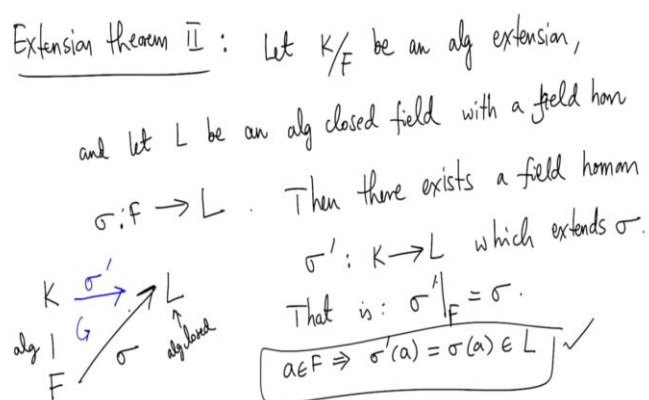 Extension theorem II : Let K/F be an alg extension,
and let L be an alg closed field with a field hom
σ: F → L . Then there exists a field homom
σ' : K → L which extends σ.
That is : σ'|_F = σ.
a ∈ F ⇒ σ'(a) = σ(a) ∈ L ✓
K σ' → L
alg | G σ ↑ alg closed
F